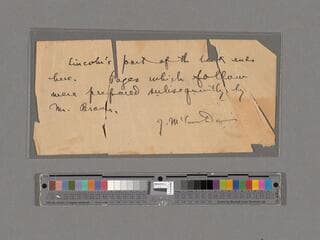 Lincoln's part of the book ends
here. Pages which follow
were prepared subsequently by
M. Brown.
J. McCan Davis